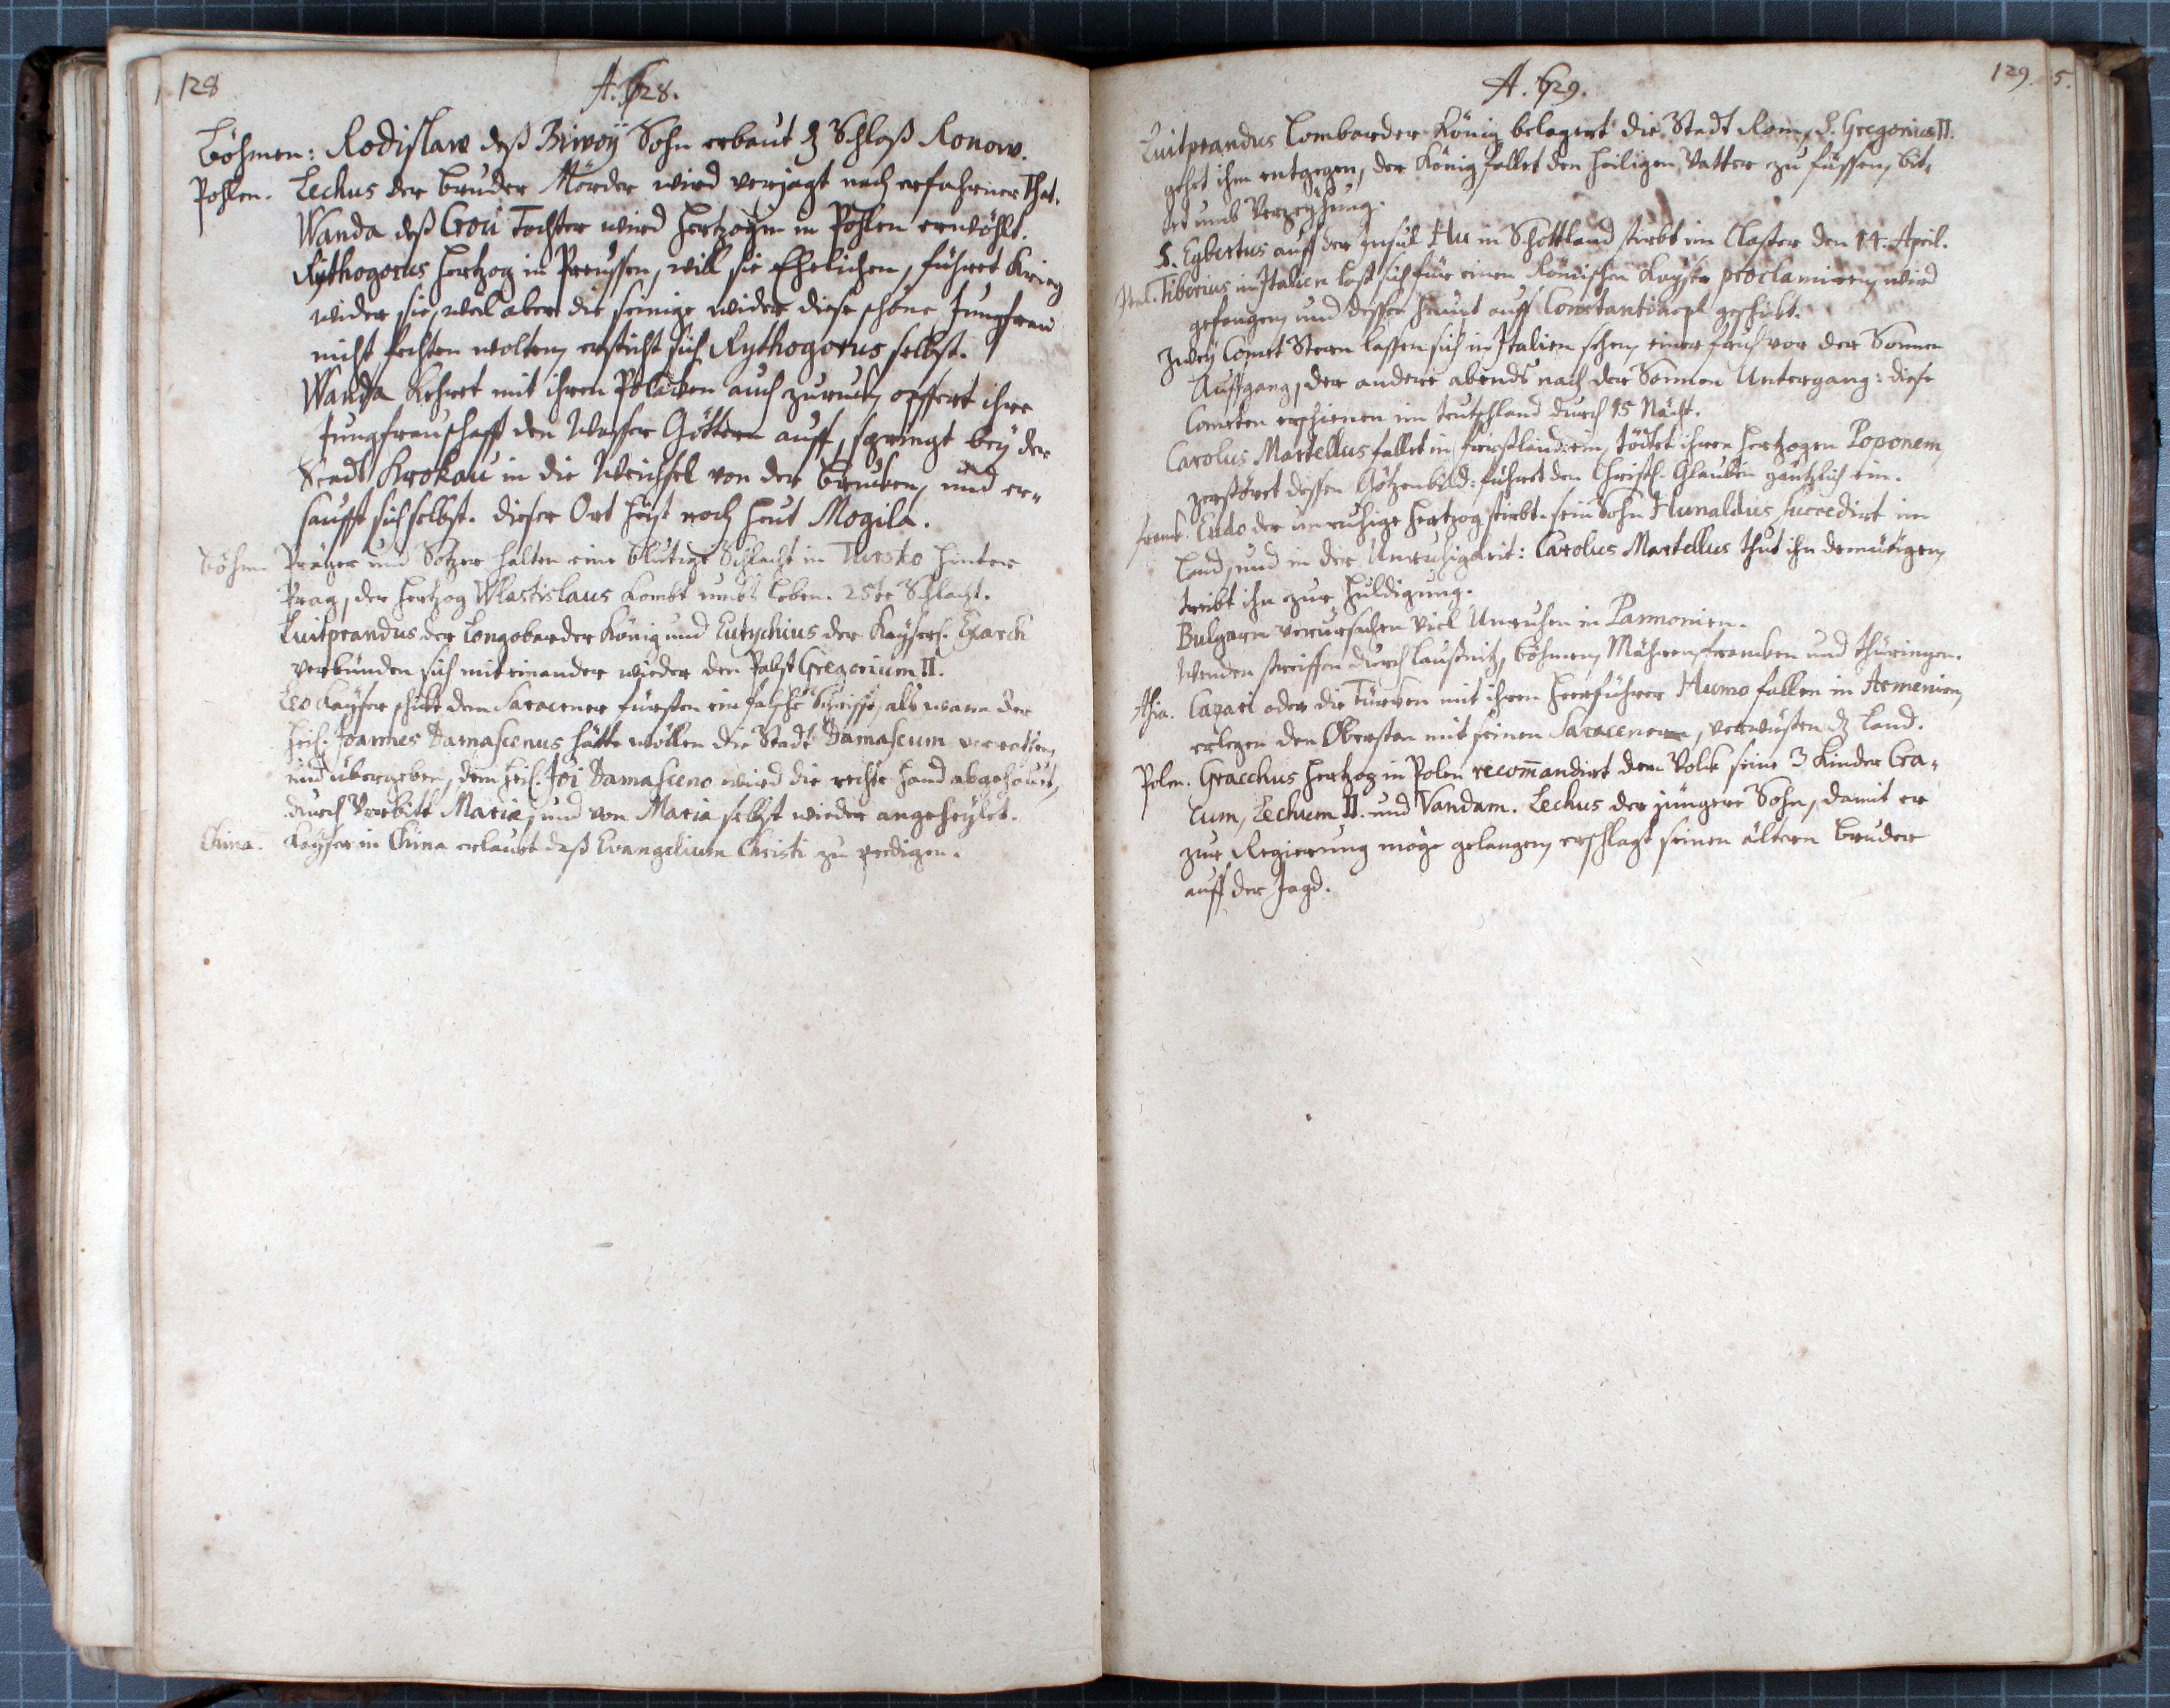 128
A. 728.
Böhmen: Rodislaw deß Biwoÿ Sohn erbaut dz Schloß Ronow.
Pohlen. Lechus der Bruder Mörder wird verjagt nach erfahrner That.
Wanda deß Croci Tochter wird Hertzogin in Pohlen erwöhlt.
Rythogorus Hertzog in Preussen, will sie Ehelichen, führet Krieg
wider sie, weil aber die seinige wider diese schöne Jungfrau
nicht fechten wolten, ersticht sich Rythogorus selbst.
Wanda kehret mit ihren Polacken auch zuruck, opffert ihre
Jungfrauschafft den Wasser Göttern auff, springt beÿ der
Stadt Krokau in die Weichsel von der Brucken, und er=
saufft sich selbst. dieser Ort heist noch heut Mogila.
Böhm. Präger und Sotzer halten eine blutige Schlacht in Tursko hinter
Prag, der Hertzog Wlastislaus kombt umbs Leben. 25te Schlacht.
Luitprandus der Longobarder König und Eutychius der Kaÿserl. Exarch
verbünden sich miteinander wieder den Pabst Gregorium II.
Leo Kaÿser schickt dem Saracener fürsten ein falsche Schrifft, als wann der
Heil. Joannes Damascenus hätte wollen die Stadt Damascum verrathen,
und übergeben, dem Heil. Joi Damasceno wird die rechte Hand abgehauet,
durch Vorbitt Mariæ, und von Maria selbst wieder angeheÿlet.
China. Kaÿser in China erlaubt daß Evangelium Christi zu predigen.
129. 5.
A. 729.
Luitprandus Lombarder König belagert die Stadt Rom, S. Gregorius II.
gehet ihm entgegen, der König fallet den Heiligen Vatter zu füssen, bit,
tet umb Verzeÿhung.
S. Egbertus auff der Insul Hu in Schottland stirbt im Closter den 14. April.
Ital. Tiberius in Italien last sich für einen Römischen Kaÿser proclamiren, wird
gefangen, und dessen Haupt auff Constantinopl geschickt.
Zweÿ Comet Stern lassen sich in Italien sehen, einer fruh vor der Sonnen
Auffgang, der andere abends nach der Sonnen Untergang: diese
Cometen erschienen im teutschland durch 15 Nächt.
Carolus Martellus fallet in frießland ein, tödtet ihren Hertzogen Poponem,
zerstöret dessen Götzenbild: führet den Christl. Glauben gäntzlich ein.
franck. Eudo der unruhige Hertzog stirbt. sein Sohn Hunaldus succedirt im
Land, und in der Unruhigkeit: Carolus Martellus thut ihn demütigen,
treibt ihn zur Huldigung.
Bulgarn verursachen viel Unruhen in Pannonien.
Wenden streiffen durch Laußnitz, Böhmen, Mähren, francken und Thüringen.
Asia. Cazari oder die Türcken mit ihrem Heerführer Humo fallen in Armenien,
erlegen den Obersten mit seinen Saracenern, verwüsten dz Land.
Polen. Gracchus Hertzog in Polen recom̄andirt dem Volck seine 3 Kinder Cra=
cum, Lechum II. und Vandam. Lechus der jüngere Sohn, damit er
zur Regierung möge gelangen, erschlagt seinen ältern Bruder
auff der Jagd.